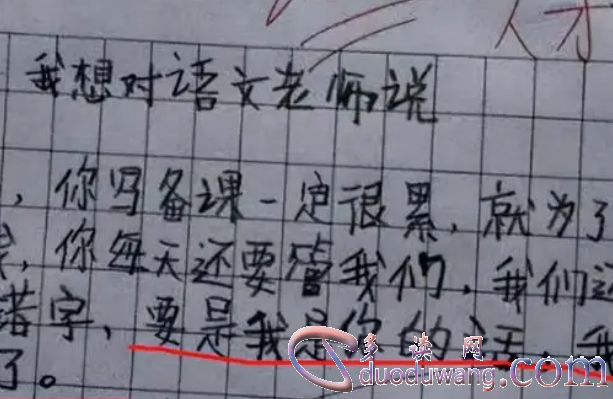 人才
我想对语文老师说
，你写备课一定很累，就为了
，你每天还要管我们，我们
错字，要是我是你的话，我
了。
多读网
duoduwang.com